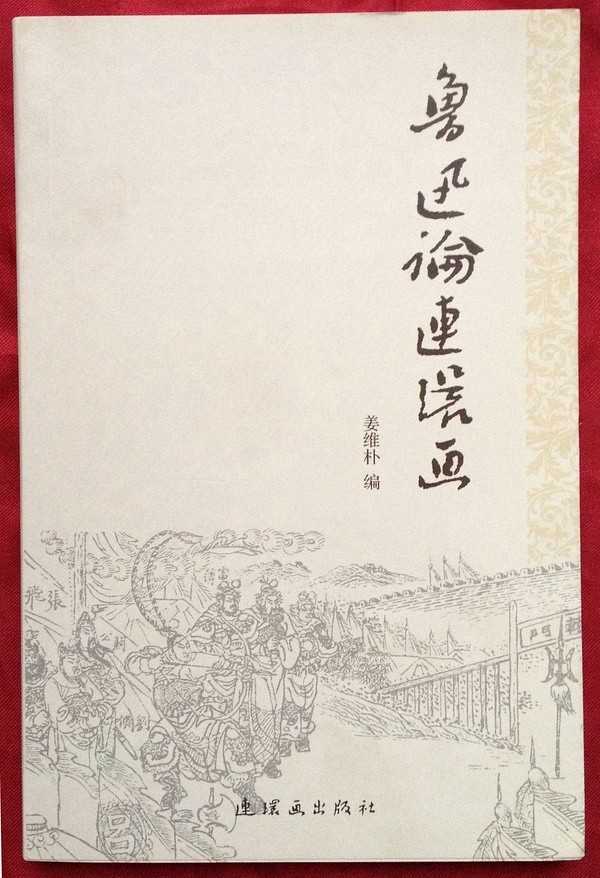 鲁迅論連環画
姜维朴 编
張飛
關公
劉備
呂
轅門
連環画出版社